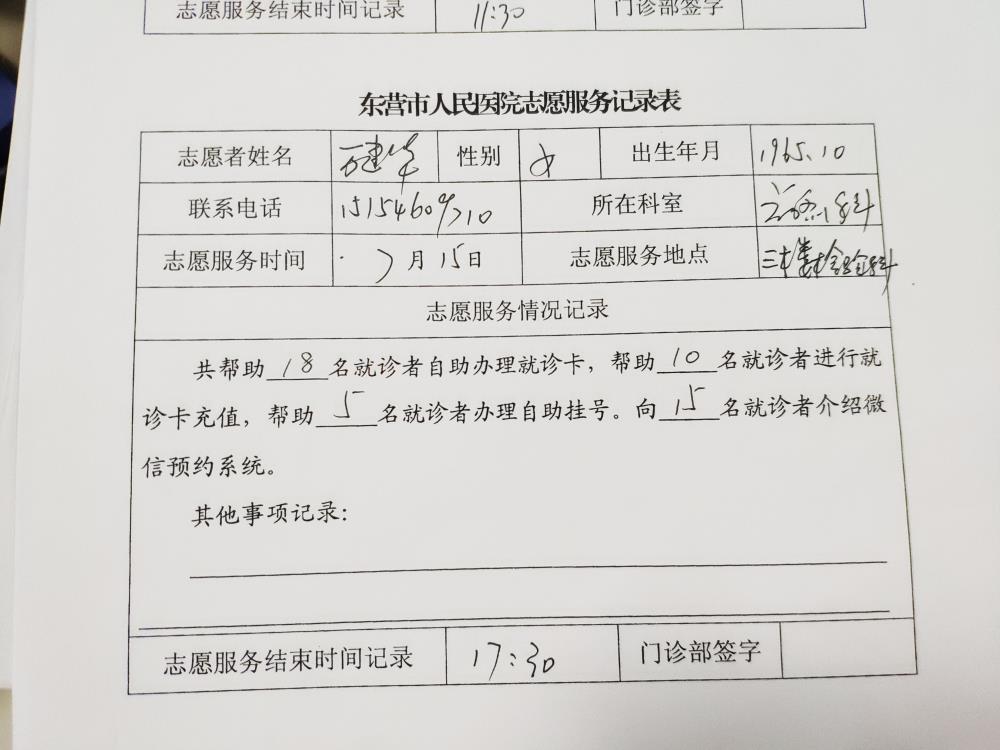 志愿服务结束时间记录 11:30 门诊部签字
东营市人民医院志愿服务记录表
志愿者姓名 万建华 性别 女 出生年月 1965.10
联系电话 15154609710 所在科室
志愿服务时间 7月15日 志愿服务地点 三楼检验科
志愿服务情况记录
共帮助 18 名就诊者自助办理就诊卡，帮助 10 名就诊者进行就
诊卡充值，帮助 5 名就诊者办理自助挂号。向 15 名就诊者介绍微
信预约系统。
其他事项记录：
志愿服务结束时间记录 17:30 门诊部签字